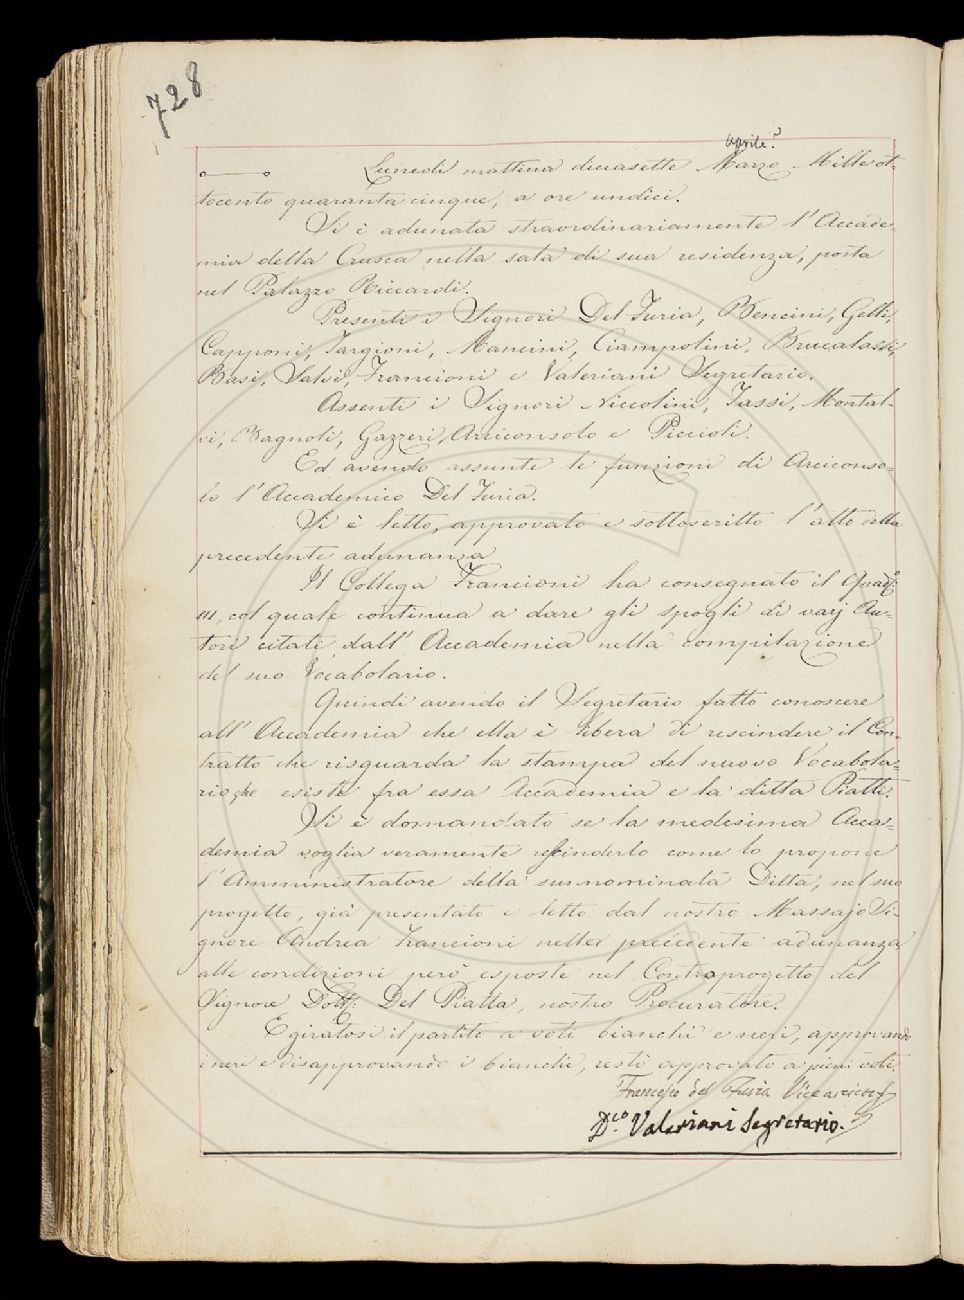 728
aprile?
Lunedì mattina diciasette Marzo Mille ot-
tocento quaranta cinque, a ore undici.
Si è adunata straordinariamente l'Accade-
mia della Crusca nella sala di sua residenza, posta
nel Palazzo Riccardi.
Presenti i Signori Del Furia, Bencini, Gelli,
Capponi, Targioni, Mancini, Ciampolini, Brucalassi,
Basi, Salvi, Francioni e Valeriani Segretario.
Assenti i Signori Niccolini, Tassi, Montal-
vi, Bagnoli, Gazzeri Arciconsolo e Piccioli.
Ed avendo assunte le funzioni di Arciconso-
lo l'Accademico Del Furia.
Si è letto, approvato e sottoscritto l'atto della
precedente adunanza
Il Collega Francioni ha consegnato il Quad.º
III, col quale continua a dare gli spogli di varj Au-
tori citati dall'Accademia nella compilazione
del suo Vocabolario.
Quindi avendo il Segretario fatto conoscere
all'Accademia che ella è libera di rescindere il Con-
tratto che risguarda la stampa del nuovo Vocabola-
rio, che esiste fra essa Accademia e la ditta Piatti.
Si è domandato se la medesima Acca-
demia voglia veramente rescinderlo come lo propone
l'Amministratore della sunnominata Ditta, nel suo
progetto, già presentato e letto dal nostro Massajo Si-
gnore Andrea Francioni nella precedente adunanza
alle condizioni però esposte nel Contraprogetto del
Signore Dott. Del Piatta, nostro Procuratore.
E giratosi il partito a voti bianchi e neri, approvando
i neri e disapprovando i bianchi, restò approvato a pieni voti
Francesco del Furia Vicearcicons
D.co Valeriani Segretario.